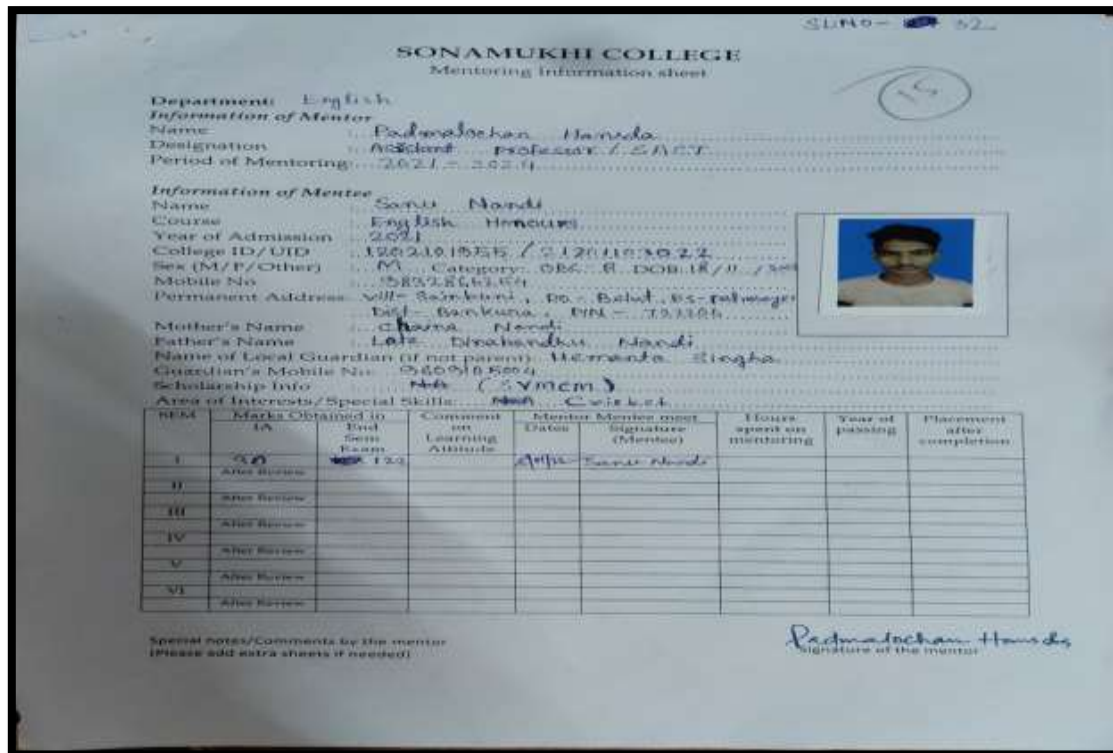 SL NO - 32
SONAMUKHI COLLEGE
Mentoring Information sheet
15
Department: English
Information of Mentor
Name : Padmalochan Hansda
Designation : Assistant Professor / SACT
Period of Mentoring: 2021 - 2024
Information of Mentee
Name : Sanu Nandi
Course : English Honours
Year of Admission : 2021
College ID/UID
Sex (M/F/Other) : M Category: OBC-B DOB: 18/11/
Mobile No
Permanent Address: Vill- , PO- , PS-
Dist- Bankura, PIN -
Mother's Name : Chaina Nandi
Father's Name : Late Dinabandhu Nandi
Name of Local Guardian (if not parent): Hemanta Singha
Guardian's Mobile No:
Scholarship Info (SVMCM)
Area of Interests/Special Skills: Cricket
SEM Marks Obtained in Comment on Learning Attitude Mentor Mentee meet Hours spent on mentoring Year of passing Placement after completion
IA End Sem Exam Dates Signature (Mentee)
I 122 Sanu Nandi
After Review
II
After Review
III
After Review
IV
After Review
V
After Review
VI
After Review
Special notes/Comments by the mentor
(Please add extra sheets if needed)
Padmalochan Hansda
Signature of the mentor